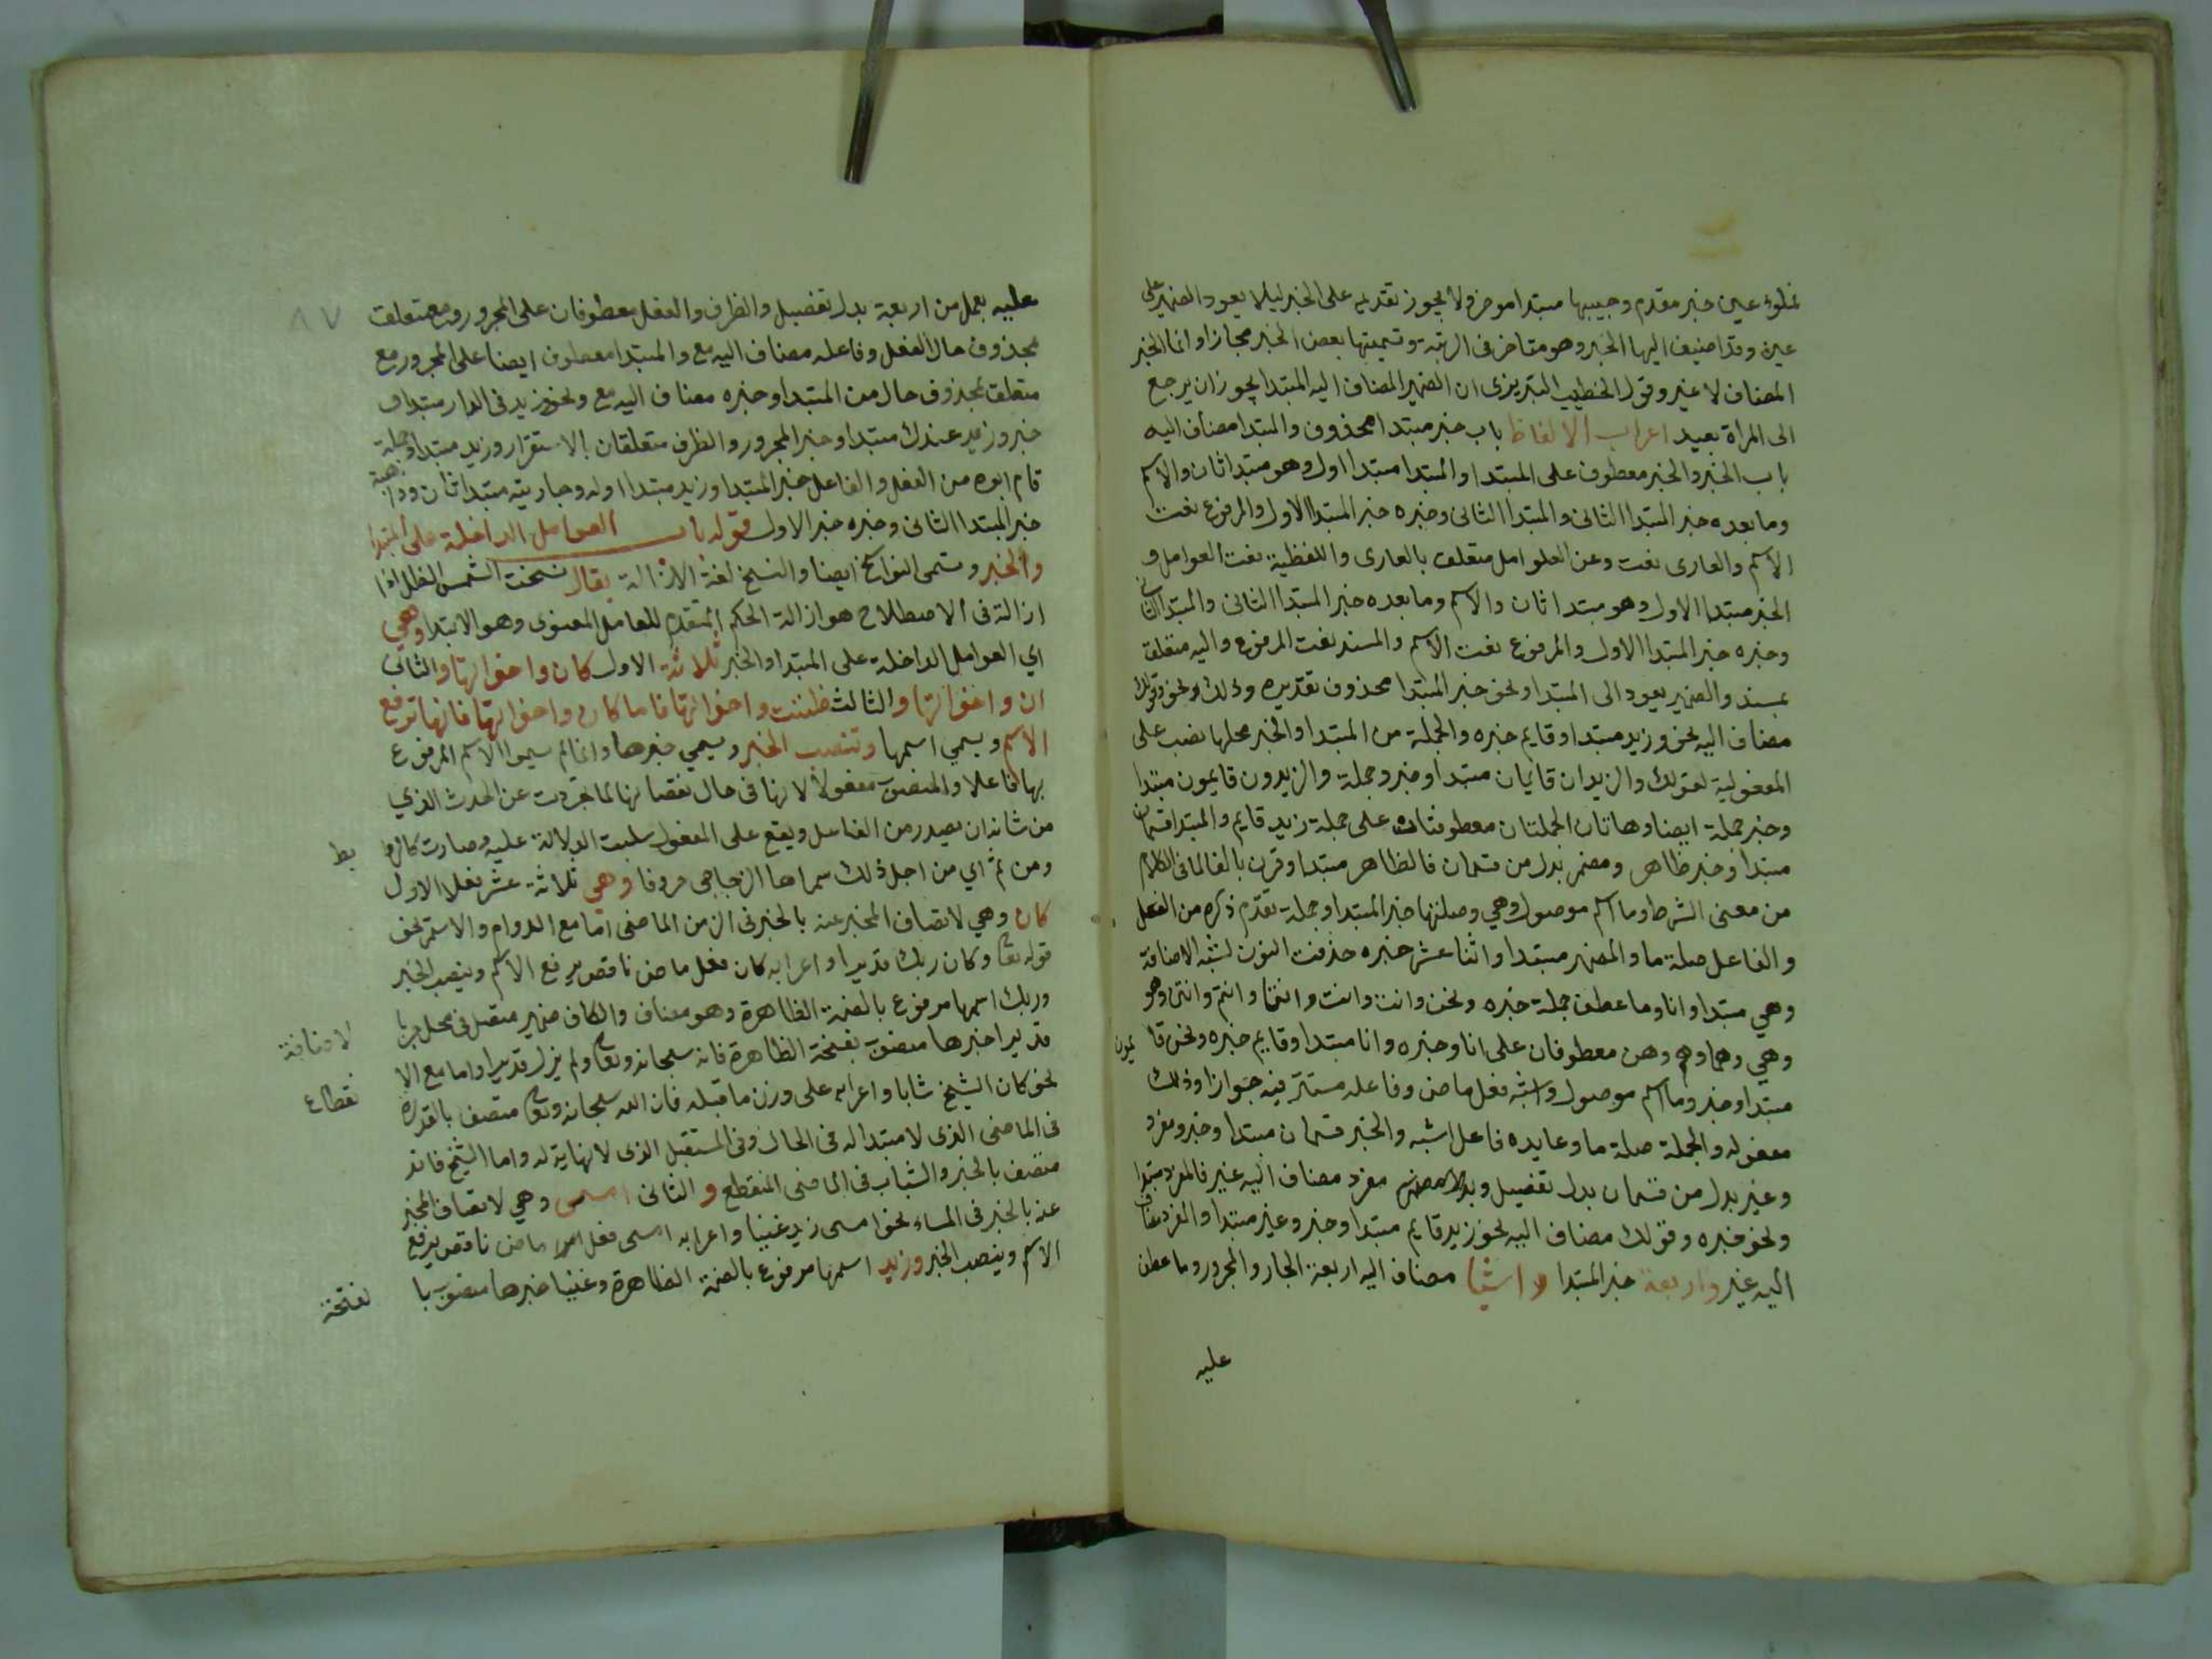 فملؤ عين خبر مقدم وحبيبها مبتدا موخر ولا يجوز تقديمه على الخبر ليلا يعود الضمير على
عين وقد اضيف اليها الخبر وهو متاخر في الرتبة وتسميتها بعض الخبر مجازا وانما الخبر
المضاف لا غير وقول الخطيب التبريزى ان الضمير المضاف اليه المبتدا يجوز ان يرجع
الى المراة بعيد اعراب الالفاظ باب خبر مبتدا محذوف والمبتدا مضاف اليه
باب الخبر والخبر معطوف على المبتدا والمبتدا مبتدا اول وهو مبتدا ثان والاسم
وما بعده خبر المبتدا الثانى والمبتدا الثانى وخبره خبر المبتدا الاول والمرفوع نعت
الاسم والعارى نعت وعن العوامل متعلق بالعارى واللفظية نعت العوامل و
الخبر مبتدا الاول وهو مبتدا ثان والاسم وما بعده خبر المبتدا الثانى والمبتدا الثانى
وخبره خبر المبتدا الاول والمرفوع نعت الاسم والمسند نعت المرفوع واليه متعلق
بمسند والضمير يعود الى المبتدا ونحو خبر المبتدا محذوف تقديره وذلك ونحو وقولك
مضاف اليه نحو وزيد مبتدا وقايم خبره والجملة من المبتدا والخبر محلها نصب على
المفعولية لقولك والزيدان قايمان مبتدا وخبر وجملة والزيدون قايمون مبتدا
وخبر جملة ايضا وهاتان الجملتان معطوفتان على جملة زيد قايم والمبتدا قسمان
مبتدا وخبر ظاهر ومضمر بدل من قسمان فالظاهر مبتدا وقرن بالفا لما في الكلام
من معنى الشرط وما اسم موصول وهي وصلتها خبر المبتدا وجملة تقدم ذكره من الفعل
والفاعل صلة ما والمضمر مبتدا واثنا عشر خبره حذفت النون لشبه الاضافة
وهي مبتدا وانا وما عطف جملة خبره ونحن وانت وانت وانتما وانتم وانتن وهو
وهي وهما وهم وهن معطوفان على انا وخبره وانا مبتدا وقايم خبره ونحن قا يمون
مبتدا وخبر وما اسم موصول واشبه فعل ماض وفاعله مستتر فيه جوازا وذلك
مفعوله والجملة صلة ما وعايده فاعل اشبه والخبر قسمان مبتدا وخبر ومفرد
وغير بدل من قسمان بدل تفضيل مفرد مضاف اليه غير فالمفرد مبتدا
ونحو خبره وقولك مضاف اليه نحو زيد قايم مبتدا وخبر وغير مبتدا والمفرد مضاف
اليه غير واربعة خبر المبتدا و اشيا مضاف اليه اربعة الجار والمجرور وما عطف
عليه
٨٧
عليه بعمل من اربعة بدل تفضيل والظرف والفعل معطوفان على المجرور ومع متعلقة
بمحذوف حال الفعل وفاعله مضاف اليه مع والمبتدا معطوف ايضا على المجرور مع
متعلق بمحذوف حال من المبتدا وخبره مضاف اليه مع ونحو زيد في الدار مبتدا و
خبر وزيد عندك مبتدا وخبر المجرور والظرف متعلقان بالاستقرار وزيد مبتدا وجملة
قام ابوه من الفعل والفاعل خبر المبتدا وزيد مبتدا اول وجاريته مبتدا ثان وذاهبة
خبر المبتدا الثانى وخبره خبر الاول قوله باب العوامل الداخلة على المبتدا
والخبر وتسمى النواسخ ايضا والنسخ لغة الازالة يقال نسخت الشمس الظل اذا
ازالته في الاصطلاح هو ازالة الحكم المتقدم للعامل المعنوى وهو الابتدا وهي
اي العوامل الداخلة على المبتدا والخبر ثلاثة الاول كان واخواتها والثانى
ان واخواتها والثالث ظننت واخواتها فاما كان واخواتها فانها ترفع
الاسم ويسمي اسمها وتنصب الخبر ويسمي خبرها وانما لم يسموا الاسم المرفوع
بها فاعلا والمنصوب مفعولا لانها في حال نقصانها لما تجردت عن الحدث الذي
من شانه ان يصدر من الفاعل ويقع على المفعول سلبت الدلالة عليه وصارت كالروا بط
ومن ثم اي من اجل ذلك سماها الزجاجى حروفا وهي ثلاثة عشر فعلا الاول
كان وهي لاتصاف المخبر عنه بالخبر في الزمن الماضى اما مع الدوام والاستمر نحو
قوله تعالى وكان ربك قديرا واعرابه كان فعل ماض ناقص يرفع الاسم وينصب الخبر
وربك اسمها مرفوع بالضمة الظاهرة وهو مضاف والكاف ضمير متصل في محل جر با لاضافة
قديرا خبرها منصوب بفتحة الظاهرة فانه سبحانه وتعالى ولم يزل قديرا واما مع الا نقطاع
نحو كان الشيخ شابا واعرابه على وزن ما قبله فان الله سبحانه وتعالى متصف بالقدرة
في الماضى الذى لا مبتدا له في الحال وفي المستقبل الذى لا نهاية له واما الشيخ فانه
متصف بالخبر والشباب في الماضى المنقطع و الثانى امسى وهي لاتصاف المخبر
عنه بالخبر في المساء نحو امسى زيد غنيا واعرابه امسى فعل ماض ناقص يرفع
الاسم وينصب الخبر وزيد اسمها مرفوع بالضمة الظاهرة وغنيا خبرها منصوب با لفتحة